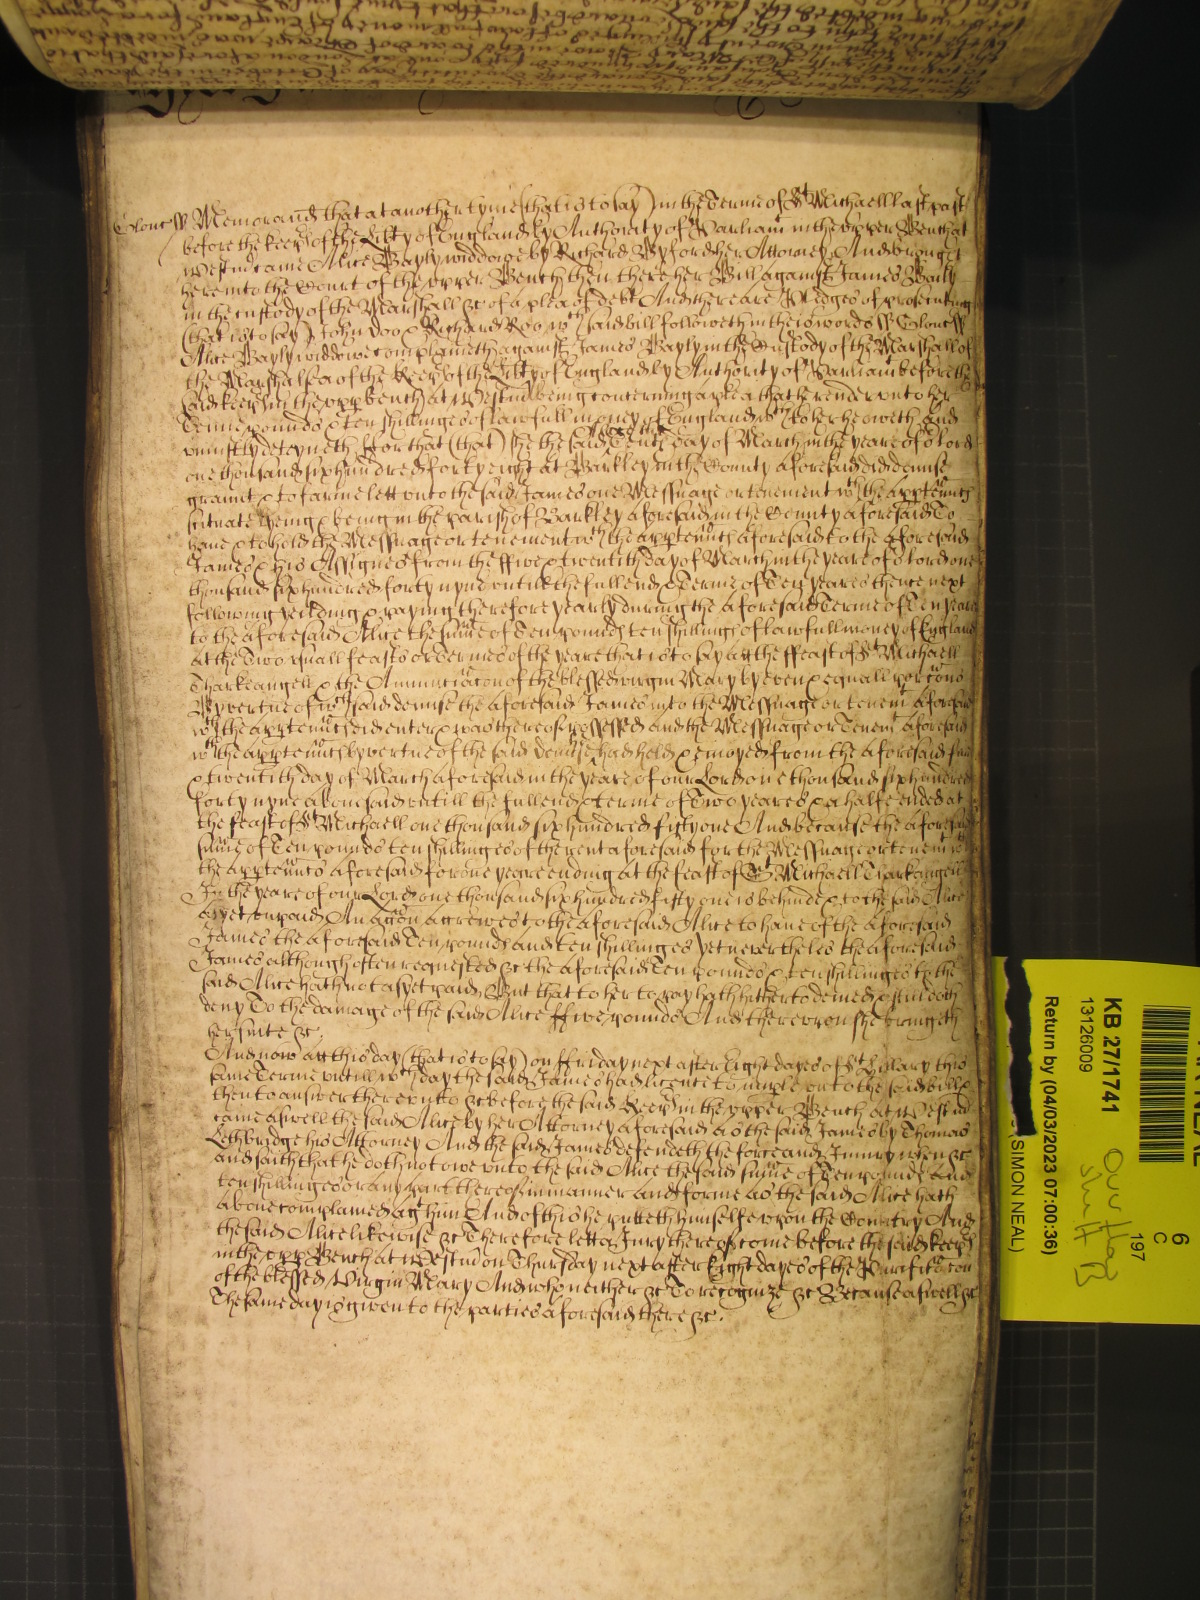 Glouc ss Memorand that at another tyme (that is to say) in the Terme of St Michaell last past
before the keeps of the Libty of England by Authority of Parliam in the upper Bench at
Westm came Alice Bayly widdowe by Richard Byford her Attorney And brought
here into the Court of the upper Bench then there her Bill against James Bayly
in the custody of the Marshall &c of a plea of debt And there are Pledges of prosecuting
(that is to say) John Doo & Richard Roo wch said bill followeth in theis words ss Glouc ss
Alice Bayly widdowe complaineth against James Bayly in the Custody of the Marshall of
the Marshalsea of the keeps of the Libty of England by Authority of Parliam before the
said keeps in the upp bench at Westm being concerning a plea that he render unto her
Tenne pounds & ten shillinges of lawfull money of England wch to her he oweth and
uniustly deteyneth ffor that (that) she the said Alice the Tenth day of March in the yeare of or Lord
one thousand six hundred forty eight at Barkley in the County aforesaid did demise
graunt & to farme lett unto the said James one Messuage or tenement wth the apptenncs
scituate lyeing & being in the parish of Barkley aforesaid in the County aforesaid To
have & to hold the Messuage or tenement wth the apptenncs aforesaid to the aforesaid
James & his Assignes from the ffive & twentith day of March in the yeare of or Lord one
thousand six hundred forty nyne untill the full end & Terme of Ten yeares thence next
following yeilding & paying therefore yearly during the aforesaid Terme of Ten yeares
to the aforesaid Alice the sume of Ten pounds ten shillings of lawfull money of England
at the Two usuall feasts or termes of the yeare that is to say att the ffeast of St Michaell
Tharkeangell & the Annunciacon of the blessed virgin Mary by even & equall porcons
By vertue of wch said demise the aforesaid James into the Messuage or tenem aforesaid
wth the apptenncs did enter & was thereof possessed and the Messuage or Tenemt aforesaid
wth the apptenncs by vertue of the said demise had held & enioyed from the aforesaid five
& twentith day of March aforesaid in the yeare of our Lord one thousand six hundred
forty nyne abovesaid untill the full end & terme of Two yeares & a halfe ended at
the feast of St Michaell one thousand six hundred fifty one And because the aforesaid
sume of Ten pounds ten shillinges of the rent aforesaid for the Messuage or tenem wth
the apptenncs aforesaid for one yeare ending at the feast of St Michaell Tharkangell
In the yeare of our Lord one thousand six hundred fifty one is behinde & to the said Alice
as yet unpaid An accon accrewes to the aforesaid Alice to have of the aforesaid
James the aforesaid Ten pounds and ten shillinges yet nevertheles the aforesaid
James although often requested &c the aforesaid Ten pounds & ten shillings to the
said Alice hath not as yet paid But that to her to pay hath hitherto denied & still doth
deny To the damage of the said Alice ffive pounds And thereupon she bringeth
her suite &c.
And now att this day (that is to say) on ffriday next after Eight dayes of St Hillary this
same Terme untill wch day the said James had licence to imple unto the said bill &
then to answer thereunto &c before the said keeps in the upper Bench at Westm
came aswell the said Alice by her Attorney aforesaid as the said James by Thomas
Lethbridge his Attorney And the said James defendeth the force and Iniury when &c
and saith that he doth not owe unto the said Alice the said sume of Ten pounds And
ten shillinges or any part thereof in manner and forme as the said Alice hath
above complained agt him And of this he putteth himselfe upon the Country And
the said Alice likewise &c Therefore lett a Iury thereof come before the said keeps
in the upp Bench at Westm on Thursday next after Eight dayes of the Purificacon
of the blessed Virgin Mary And who neither &c To recognize &c Because aswell &c
The same day is given to the parties aforesaid there &c.
KB 27/1741
13126009
Return by (04/03/2023 07:00:36)
(SIMON NEAL)
6
C
197